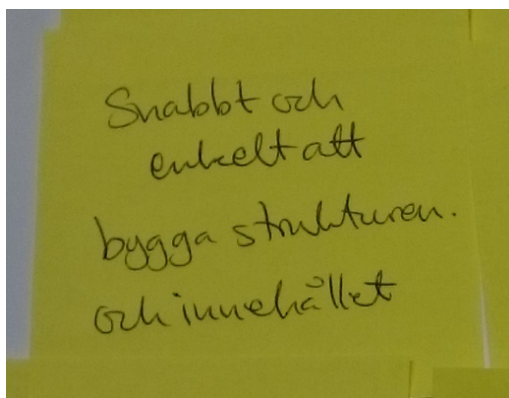 Snabbt och
enkelt att
bygga strukturen.
och innehållet